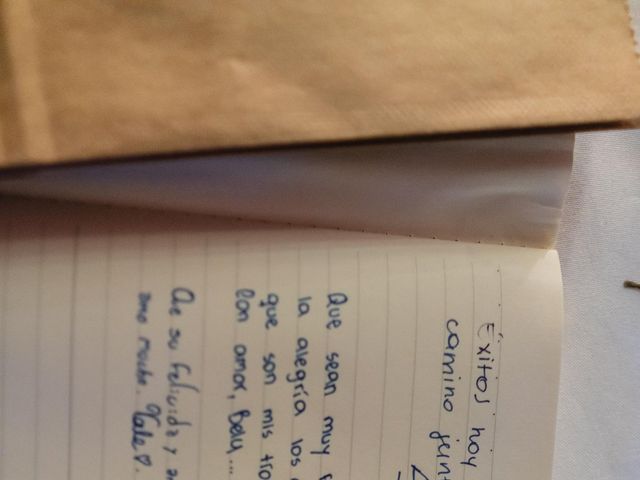 Éxitos hoy
camino junt
Que sean muy
la alegría los
que son mis tro
Con amor, Belu...
Que su felicida y
amo mucho. Vale♡.